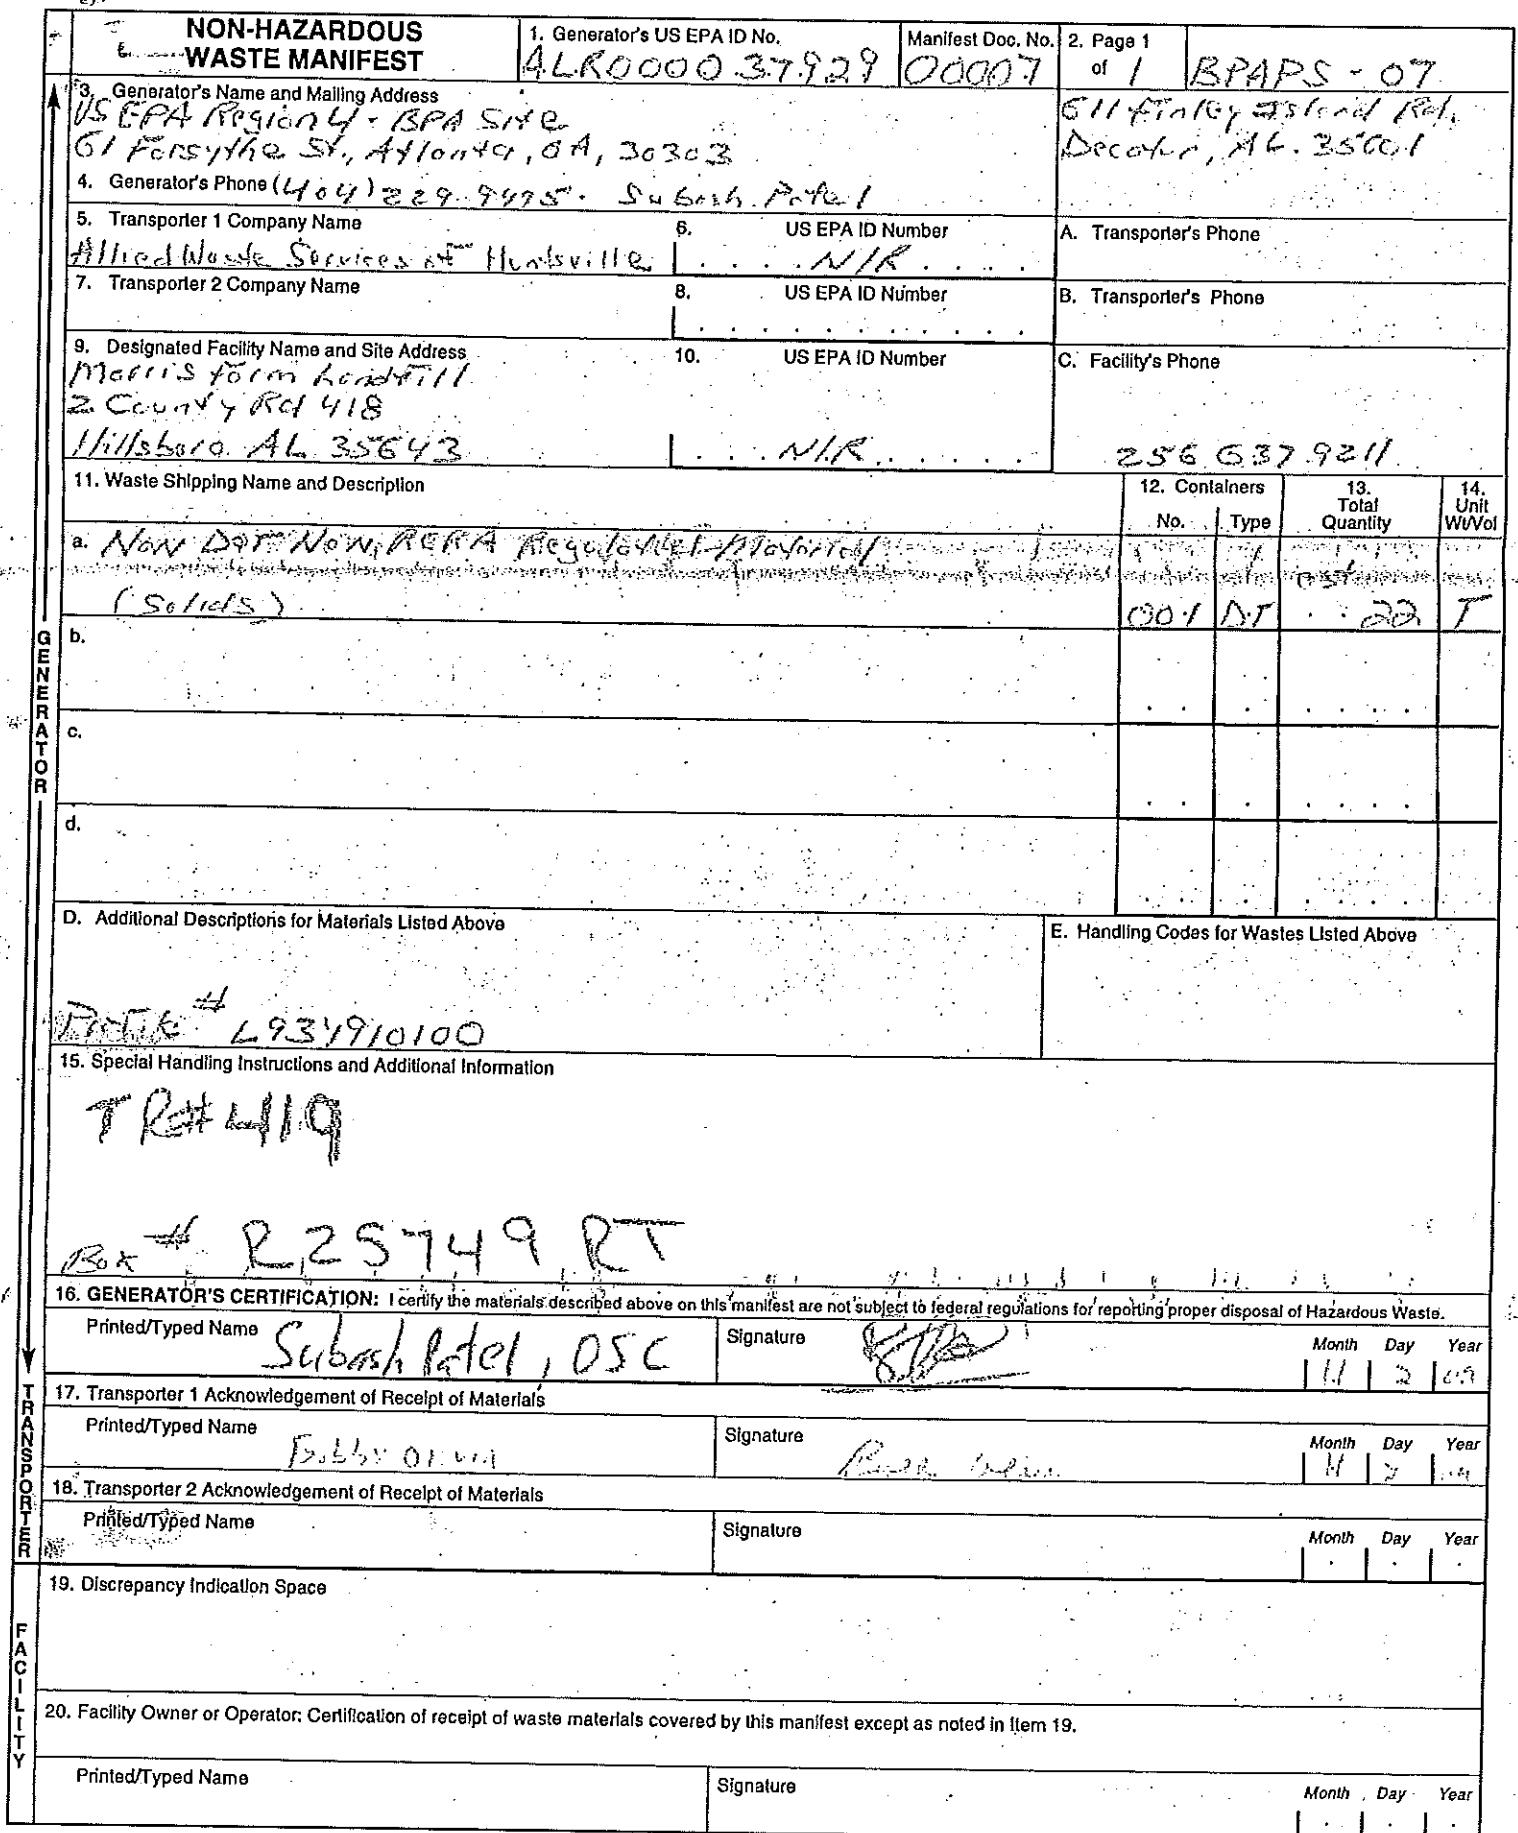 NON-HAZARDOUS
WASTE MANIFEST
1. Generator's US EPA ID No.
ALR000037929
Manifest Doc. No.
00007
2. Page 1
of 1
BPAPS - 07
3. Generator's Name and Mailing Address
US EPA Region 4 - BPA Site
61 Forsythe St., Atlanta, GA, 30303
611 Finley Island Rd.
Decatur, AL. 35601
4. Generator's Phone (404) 229-9475. Subash Patel
5. Transporter 1 Company Name
Allied Waste Services of Huntsville
6. US EPA ID Number
N/R
A. Transporter's Phone
7. Transporter 2 Company Name
8. US EPA ID Number
B. Transporter's Phone
9. Designated Facility Name and Site Address
Morris Farm Landfill
2 County Rd 418
Hillsboro AL 35643
10. US EPA ID Number
N/R
C. Facility's Phone
256 637 9211
11. Waste Shipping Name and Description
12. Containers
No. Type
13.
Total
Quantity
14.
Unit
Wt/Vol
a. Non DOT Non, RCRA Regulated Material
(Solids)
est
001 DT 22 T
b.
c.
d.
D. Additional Descriptions for Materials Listed Above
Profile # L934910100
E. Handling Codes for Wastes Listed Above
15. Special Handling Instructions and Additional Information
TR#419
Box # R25749 RT
16. GENERATOR'S CERTIFICATION: I certify the materials described above on this manifest are not subject to federal regulations for reporting proper disposal of Hazardous Waste.
Printed/Typed Name
Subash Patel, OSC
Signature
Month Day Year
11 2 09
17. Transporter 1 Acknowledgement of Receipt of Materials
Printed/Typed Name
Bobby
Signature
Month Day Year
11 2
18. Transporter 2 Acknowledgement of Receipt of Materials
Printed/Typed Name
Signature
Month Day Year
19. Discrepancy Indication Space
20. Facility Owner or Operator: Certification of receipt of waste materials covered by this manifest except as noted in Item 19.
Printed/Typed Name
Signature
Month Day Year
GENERATOR
TRANSPORTER
FACILITY